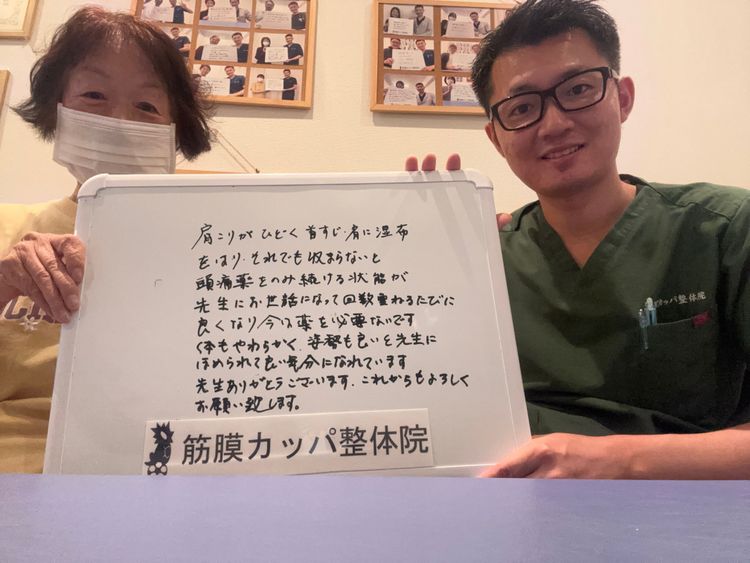 肩こりがひどく首すじ・肩に湿布
をはり、それでも収まらないと
頭痛薬をのみ続ける状態が
先生にお世話になって回数重ねるたびに
良くなり今は薬を必要ないです
体もやわらかく、姿勢も良いと先生に
ほめられて良い気分になれています
先生ありがとうございます、これからもよろしく
お願い致します。
筋膜カッパ整体院
カッパ整体院